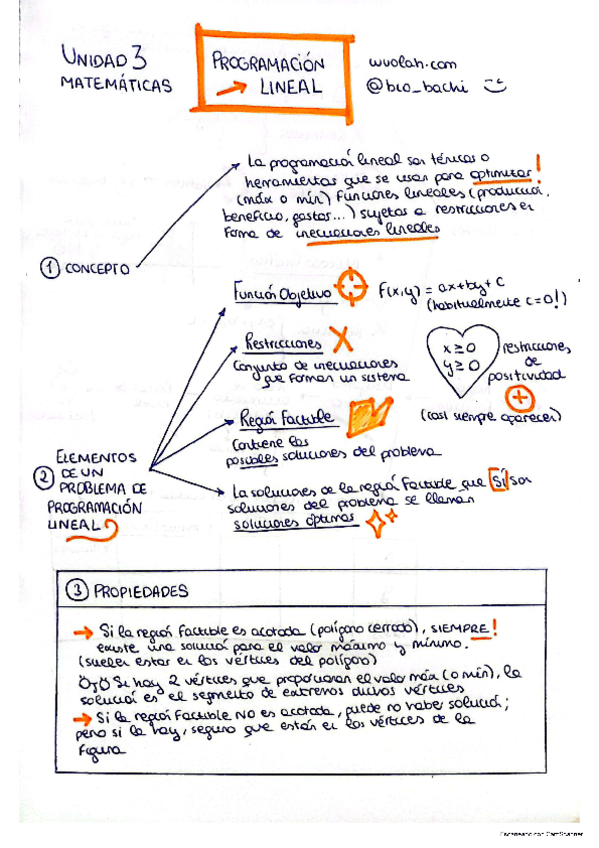 UNIDAD 3
MATEMÁTICAS
PROGRAMACIÓN
→ LINEAL
wuolah.com
@bio_bachi
→ La programación lineal son técnicas o
herramientas que se usan para optimizar!
(máx o mín) funciones lineales (producción,
beneficio, gastos...) sujetas a restricciones en
forma de inecuaciones lineales
① CONCEPTO
Función Objetivo
F(x,y) = ax+by+c
(habitualmente c=0!)
Restricciones
Conjunto de inecuaciones
que forman un sistema
x ≥ 0
y ≥ 0
restricciones
de
positividad
(casi siempre aparecen)
Región Factible
Contiene las
posibles soluciones del problema
② ELEMENTOS
DE UN
PROBLEMA DE
PROGRAMACIÓN
LINEAL
La soluciones de la región factible que SÍ son
soluciones del problema se llaman
soluciones óptimas
③ PROPIEDADES
→ Si la región factible es acotada (polígono cerrado), SIEMPRE!
existe una solución para el valor máximo y mínimo.
(suelen estar en los vértices del polígono)
Si hay 2 vértices que proporcionan el valor máx (o mín), la
solución es el segmento de extremos dichos vértices
→ Si la región factible NO es acotada, puede no haber solución;
pero si la hay, seguro que están en los vértices de la
figura
Escaneado con CamScanner